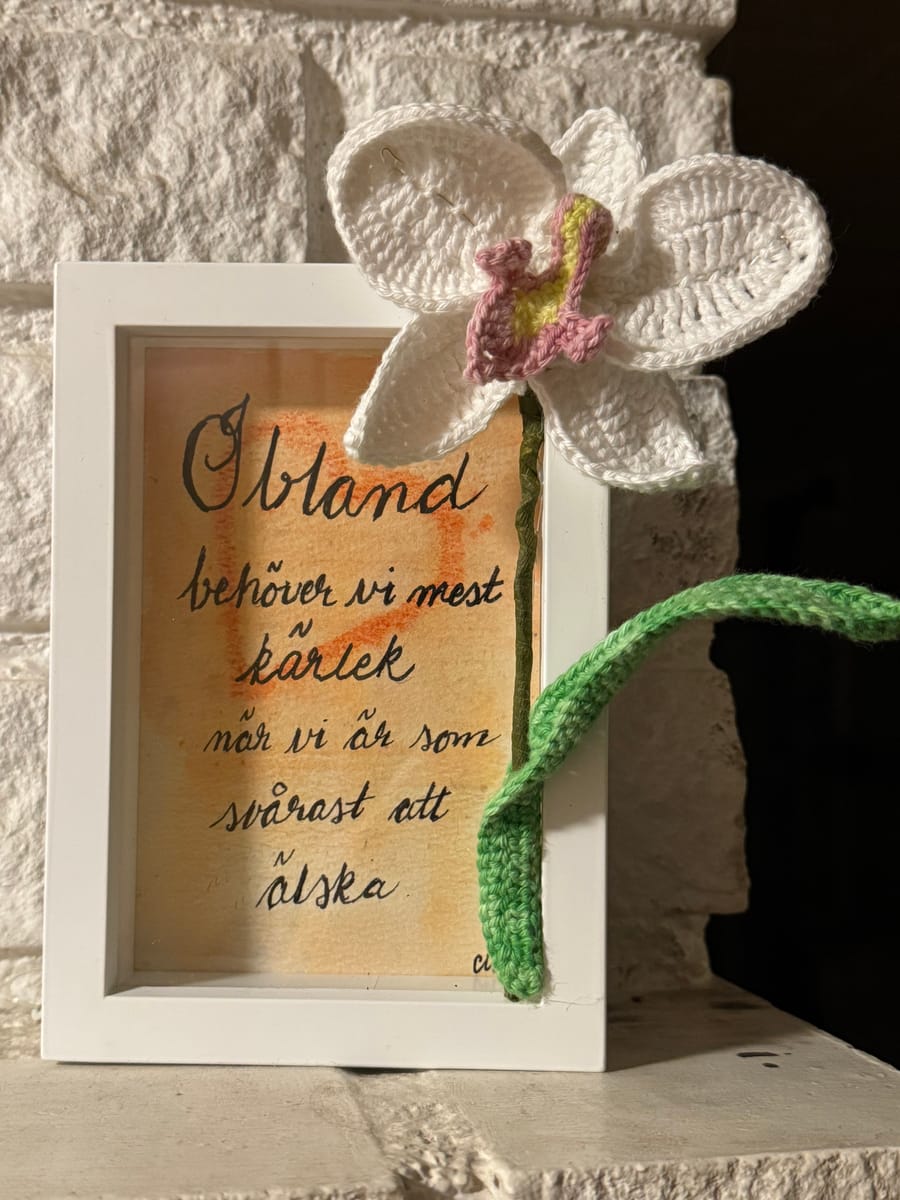 Ibland
behöver vi mest
kärlek
när vi är som
svårast att
älska